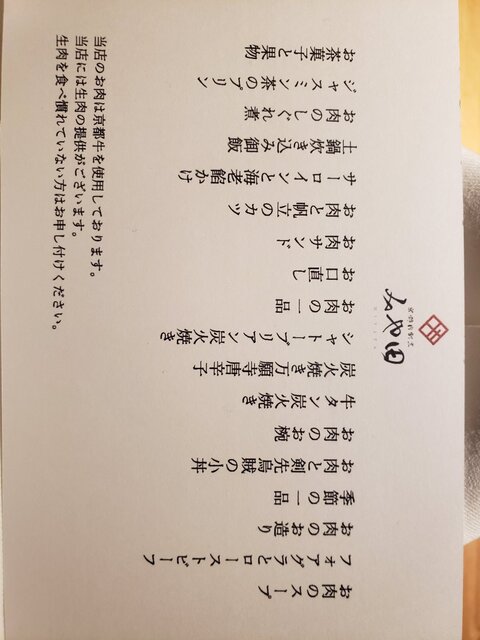 みや田
お肉のスープ
フォアグラとローストビーフ
お肉のお造り
季節の一品
お肉と剣先烏賊の小丼
お肉のお椀
牛タン炭火焼き
炭火焼き万願寺唐辛子
シャトーブリアン炭火焼き
お肉の一品
お口直し
お肉サンド
お肉と帆立のカツ
サーロインと海老餡かけ
土鍋炊き込み御飯
お肉のしぐれ煮
ジャスミン茶のプリン
お茶菓子と果物
当店のお肉は京都牛を使用しております。
当店には生肉の提供がございます。
生肉を食べ慣れていない方はお申し付けください。